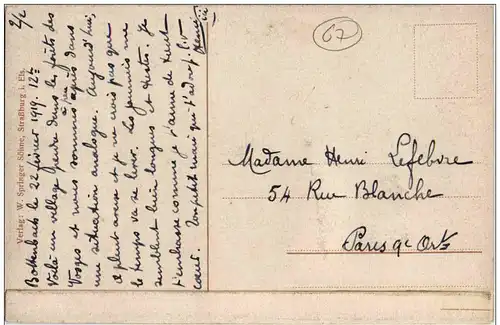 2/2
67
Verlag: W. Springer Söhne, Straßburg i. Els.
Bottenbach le 22 février 1919. 12h
Voilà un village perdu dans les forêts des
Vosges et nous sommes à peu après dans
une situation analogue. Aujourd'hui,
il pleut encore et je ne crois pas que
le temps va se lever. Les journées me
semblent bien longues et tristes. Je
t'embrasse comme je t'aime de tout
cœur. Ton petit mari qui t'adore
Henri
Madame Henri Lefebvre
54 Rue Blanche
Paris 9e Arrt